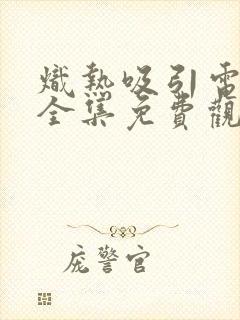 熾熱吸引電
全集免費觀
庞警官